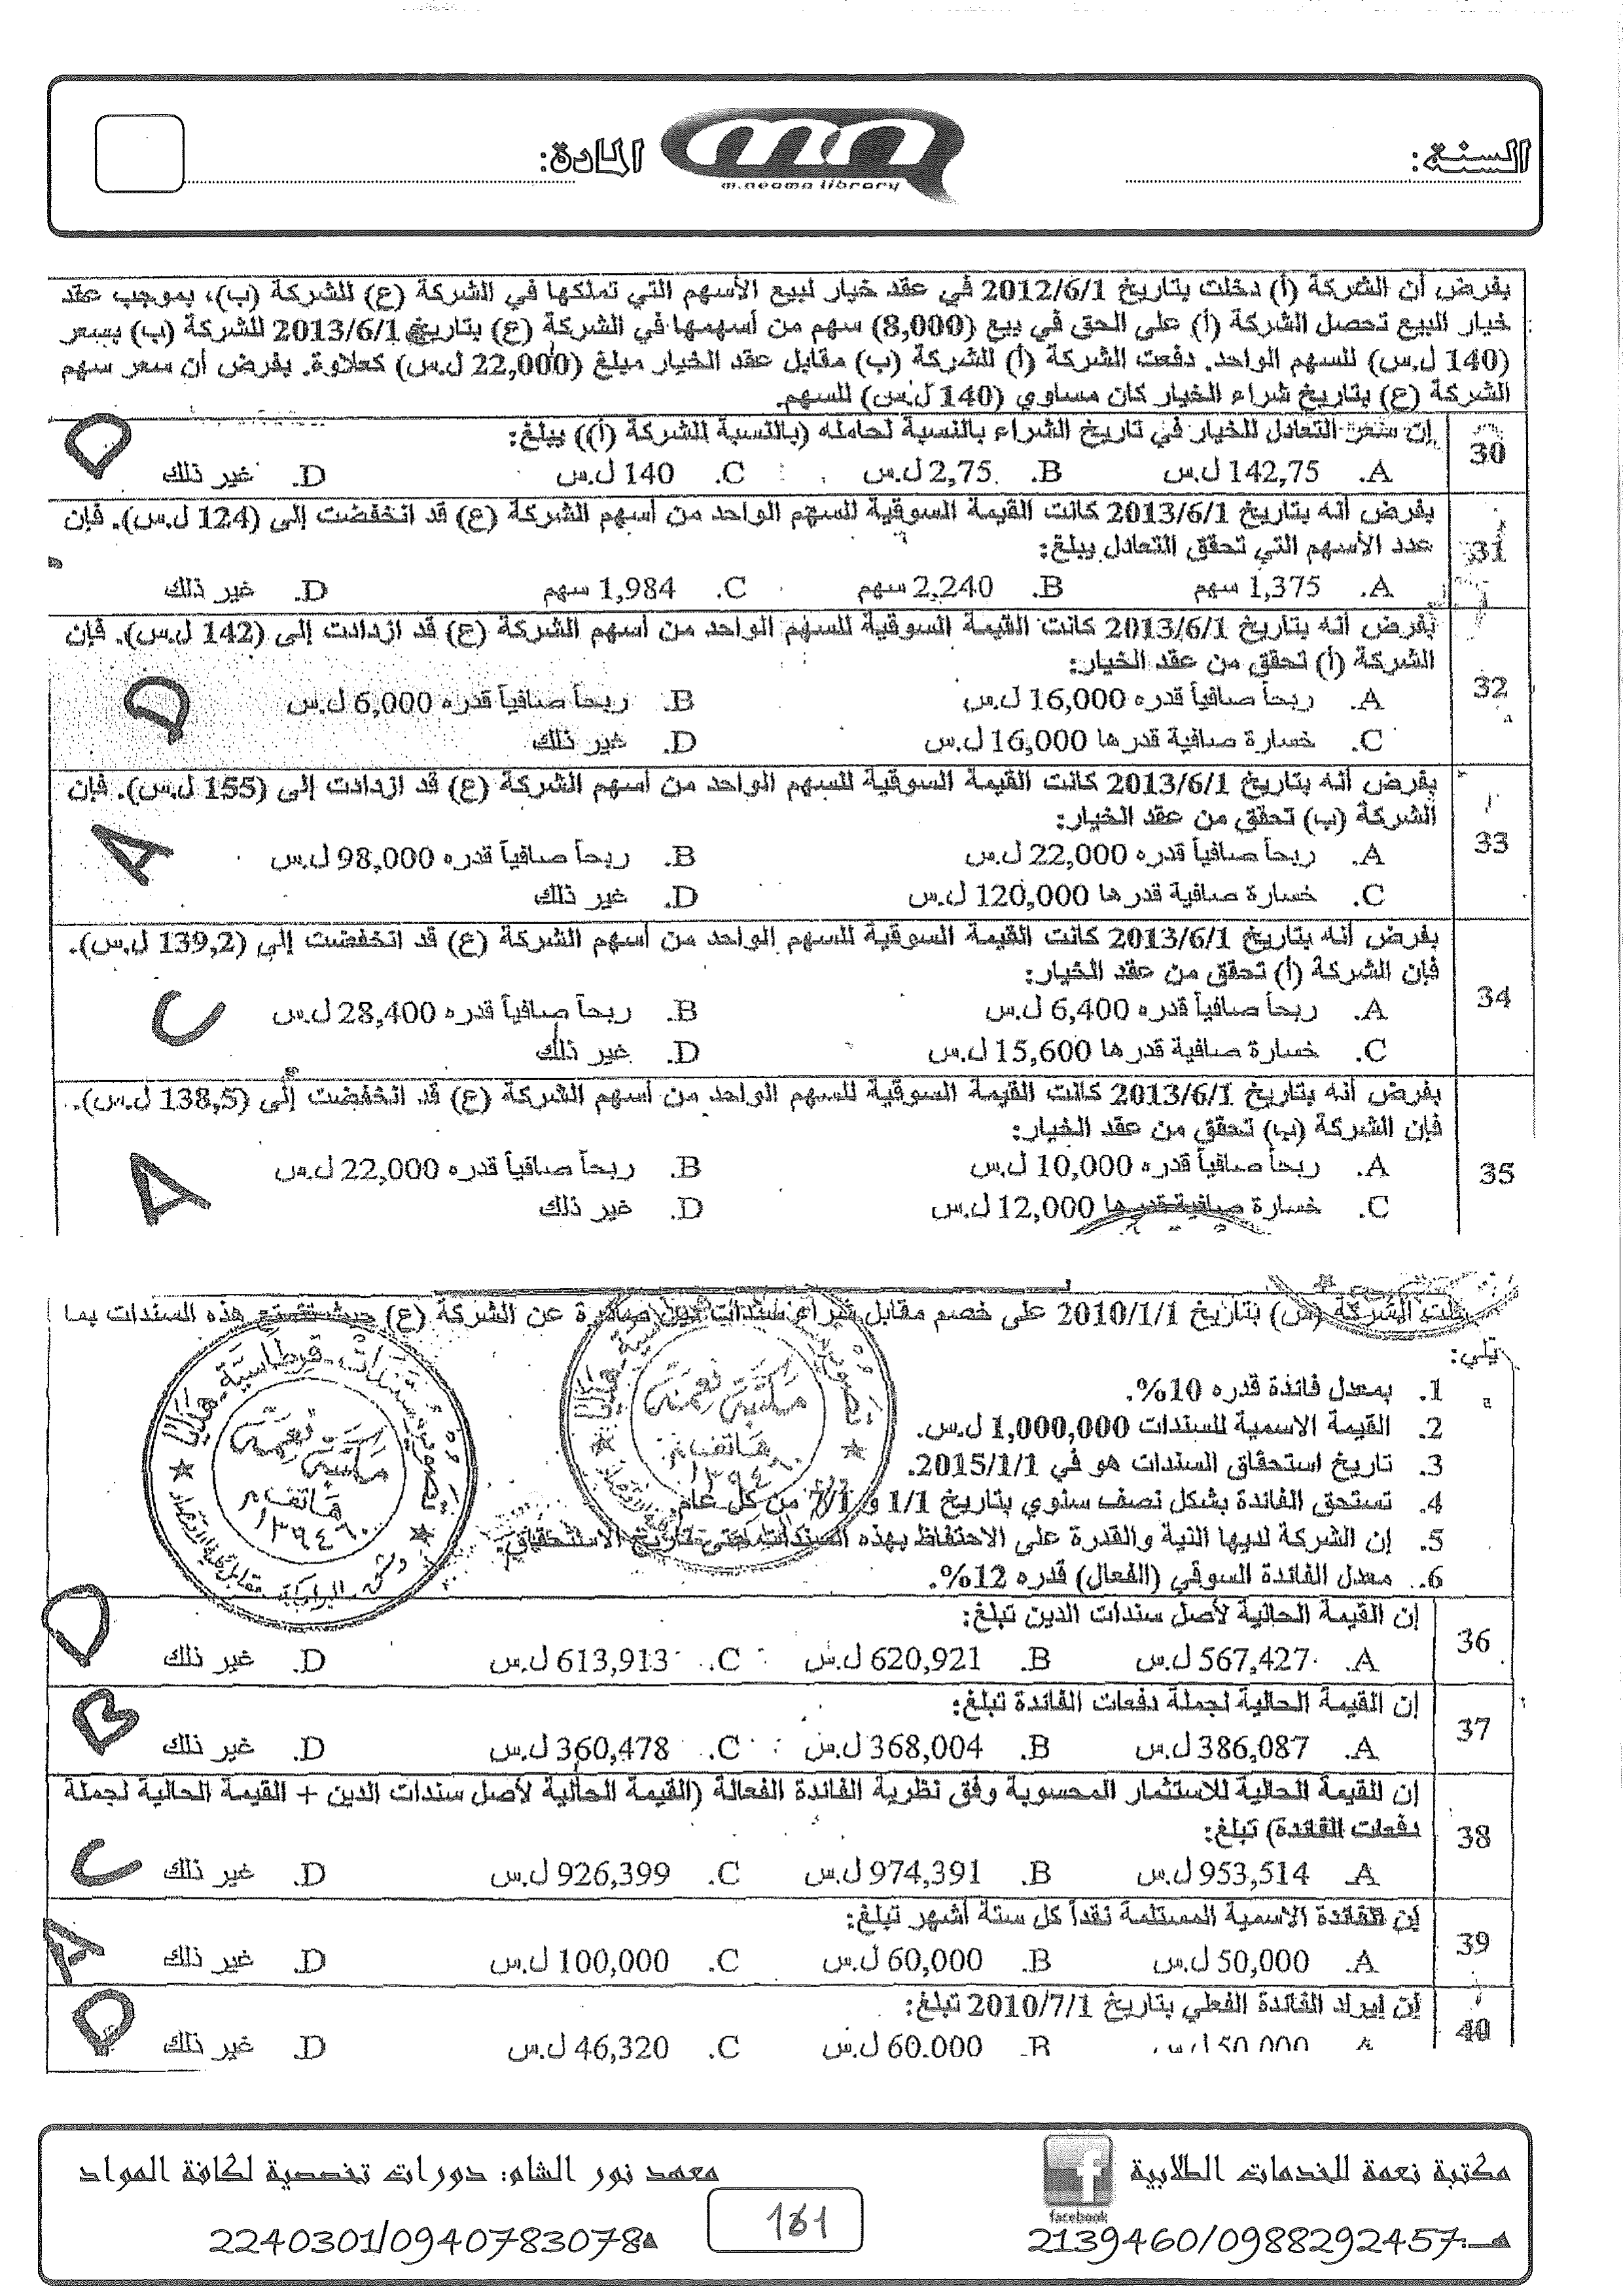 السنة:
المادة:
m.neama library
بفرض أن الشركة (أ) دخلت بتاريخ 2012/6/1 في عقد خيار لبيع الأسهم التي تملكها في الشركة (ع) للشركة (ب)، بموجب عقد
خيار البيع تحصل الشركة (أ) على الحق في بيع (8,000) سهم من أسهمها في الشركة (ع) بتاريخ 2013/6/1 للشركة (ب) بسعر
(140 ل.س) للسهم الواحد. دفعت الشركة (أ) للشركة (ب) مقابل عقد الخيار مبلغ (22,000 ل.س) كعلاوة. بفرض أن سعر سهم
الشركة (ع) بتاريخ شراء الخيار كان مساوي (140 ل.س) للسهم.
30 إن سعر التعادل للخيار في تاريخ الشراء بالنسبة لحامله (بالنسبة للشركة (أ)) يبلغ:
A. 142,75 ل.س B. 2,75 ل.س C. 140 ل.س D. غير ذلك D
31 بفرض أنه بتاريخ 2013/6/1 كانت القيمة السوقية للسهم الواحد من أسهم الشركة (ع) قد انخفضت إلى (124 ل.س). فإن
عدد الأسهم التي تحقق التعادل يبلغ:
A. 1,375 سهم B. 2,240 سهم C. 1,984 سهم D. غير ذلك
32 بفرض أنه بتاريخ 2013/6/1 كانت القيمة السوقية للسهم الواحد من أسهم الشركة (ع) قد ازدادت إلى (142 ل.س). فإن
الشركة (أ) تحقق من عقد الخيار:
A. ربحاً صافياً قدره 16,000 ل.س B. ربحاً صافياً قدره 6,000 ل.س D
C. خسارة صافية قدرها 16,000 ل.س D. غير ذلك
33 بفرض أنه بتاريخ 2013/6/1 كانت القيمة السوقية للسهم الواحد من أسهم الشركة (ع) قد ازدادت إلى (155 ل.س). فإن
الشركة (ب) تحقق من عقد الخيار:
A. ربحاً صافياً قدره 22,000 ل.س B. ربحاً صافياً قدره 98,000 ل.س A
C. خسارة صافية قدرها 120,000 ل.س D. غير ذلك
34 بفرض أنه بتاريخ 2013/6/1 كانت القيمة السوقية للسهم الواحد من أسهم الشركة (ع) قد انخفضت إلى (139,2 ل.س).
فإن الشركة (أ) تحقق من عقد الخيار:
A. ربحاً صافياً قدره 6,400 ل.س B. ربحاً صافياً قدره 28,400 ل.س C
C. خسارة صافية قدرها 15,600 ل.س D. غير ذلك
35 بفرض أنه بتاريخ 2013/6/1 كانت القيمة السوقية للسهم الواحد من أسهم الشركة (ع) قد انخفضت إلى (138,5 ل.س).
فإن الشركة (ب) تحقق من عقد الخيار:
A. ربحاً صافياً قدره 10,000 ل.س B. ربحاً صافياً قدره 22,000 ل.س A
C. خسارة صافية قدرها 12,000 ل.س D. غير ذلك
الشركة (س) بتاريخ 2010/1/1 على خصم مقابل شراء سندات دين صادرة عن الشركة (ع) حيث تتمتع هذه السندات بما
يلي:
1. بمعدل فائدة قدره 10%.
2. القيمة الاسمية للسندات 1,000,000 ل.س.
3. تاريخ استحقاق السندات هو في 2015/1/1.
4. تستحق الفائدة بشكل نصف سنوي بتاريخ 1/1 و 7/1 من كل عام
5. إن الشركة لديها النية والقدرة على الاحتفاظ بهذه السندات حتى تاريخ الاستحقاق
6. معدل الفائدة السوقي (الفعال) قدره 12%.
مكتبة نعمة
هاتف
١٣٩٤٦٠
مكتبة نعمة
هاتف
١٣٩٤٦٠
36 إن القيمة الحالية لأصل سندات الدين تبلغ:
A. 567,427 ل.س B. 620,921 ل.س C. 613,913 ل.س D. غير ذلك D
37 إن القيمة الحالية لجملة دفعات الفائدة تبلغ:
A. 386,087 ل.س B. 368,004 ل.س C. 360,478 ل.س D. غير ذلك B
38 إن القيمة الحالية للاستثمار المحسوبة وفق نظرية الفائدة الفعالة (القيمة الحالية لأصل سندات الدين + القيمة الحالية لجملة
دفعات الفائدة) تبلغ:
A. 953,514 ل.س B. 974,391 ل.س C. 926,399 ل.س D. غير ذلك C
39 إن الفائدة الاسمية المستلمة نقداً كل ستة أشهر تبلغ:
A. 50,000 ل.س B. 60,000 ل.س C. 100,000 ل.س D. غير ذلك A
40 إن إيراد الفائدة الفعلي بتاريخ 2010/7/1 تبلغ:
A. 50,000 ل.س B. 60.000 ل.س C. 46,320 ل.س D. غير ذلك D
مكتبة نعمة للخدمات الطلابية
facebook
معهد نور الشام: دورات تخصصية لكافة المواد
هـ:2139460/0988292457
161
هـ2240301/0940783078